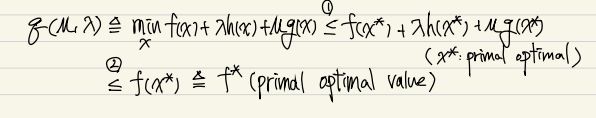 q(μ, λ) ≜ min_x f(x) + λh(x) + μg(x) ≤① f(x*) + λh(x*) + μg(x*)
(x*: primal optimal)
≤② f(x*) ≜ f* (primal optimal value)